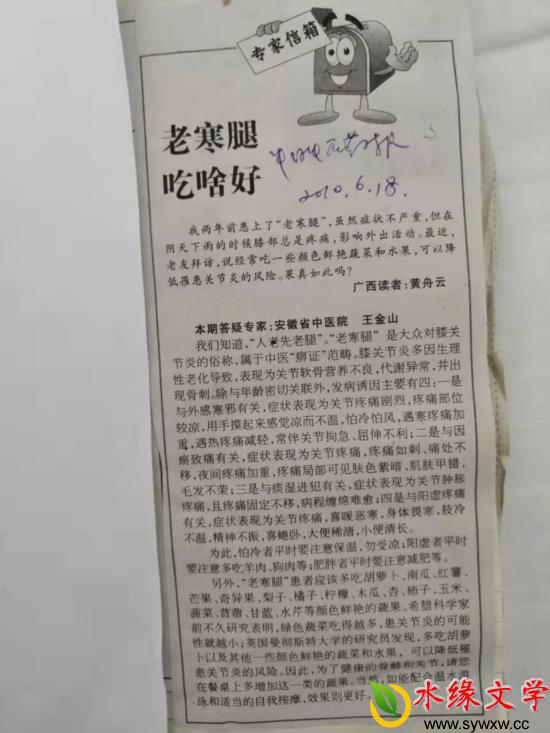 专家信箱
老寒腿
吃啥好
中国医药报
2010.6.18.
我两年前患上了“老寒腿”，虽然症状不严重，但在
阴天下雨的时候膝部总是疼痛，影响外出活动。最近，
老友拜访，说经常吃一些颜色鲜艳蔬菜和水果，可以降
低罹患关节炎的风险。果真如此吗？
广西读者：黄舟云
本期答疑专家：安徽省中医院 王金山
我们知道，“人老先老腿”。“老寒腿”是大众对膝关
节炎的俗称，属于中医“痹证”范畴。膝关节炎多因生理
性老化导致，表现为关节软骨营养不良，代谢异常，并出
现骨刺。除与年龄密切关联外，发病诱因主要有四：一是
与外感寒邪有关，症状表现为关节疼痛剧烈，疼痛部位
较凉，用手摸起来感觉凉而不温，怕冷怕风，遇寒疼痛加
重，遇热疼痛减轻，常伴关节拘急、屈伸不利；二是与因
瘀致痛有关，症状表现为关节疼痛，疼痛如刺，痛处不
移，夜间疼痛加重，疼痛局部可见肤色紫暗、肌肤甲错，
毛发不荣；三是与痰湿进犯有关，症状表现为关节肿胀
疼痛，且疼痛固定不移，病程缠绵难愈；四是与阳虚疼痛
有关，症状表现为关节疼痛，喜暖恶寒，身体畏寒，肢冷
不温，精神不振，喜蜷卧，大便稀溏，小便清长。
为此，怕冷者平时要注意保温，勿受凉；阳虚者平时
要注意多吃羊肉、狗肉等；肥胖者平时要注意减肥等。
另外，“老寒腿”患者应该多吃胡萝卜、南瓜、红薯、
芒果、奇异果、梨子、橘子、柠檬、木瓜、杏、柿子、玉米、
菠菜、茴蒿、甘蓝、水芹等颜色鲜艳的蔬果。希腊科学家
前不久研究表明，绿色蔬菜吃得越多，患关节炎的可能
性就越小；英国曼彻斯特大学的研究员发现，多吃胡萝
卜以及其他一些颜色鲜艳的蔬菜和水果，可以降低罹
患关节炎的风险。因此，为了健康的骨骼和关节，请您
在餐桌上多增加这一类的蔬果。当然，如能配合温水游
泳和适当的自我按摩，效果则更好。
水缘文学
www.sywxw.cc